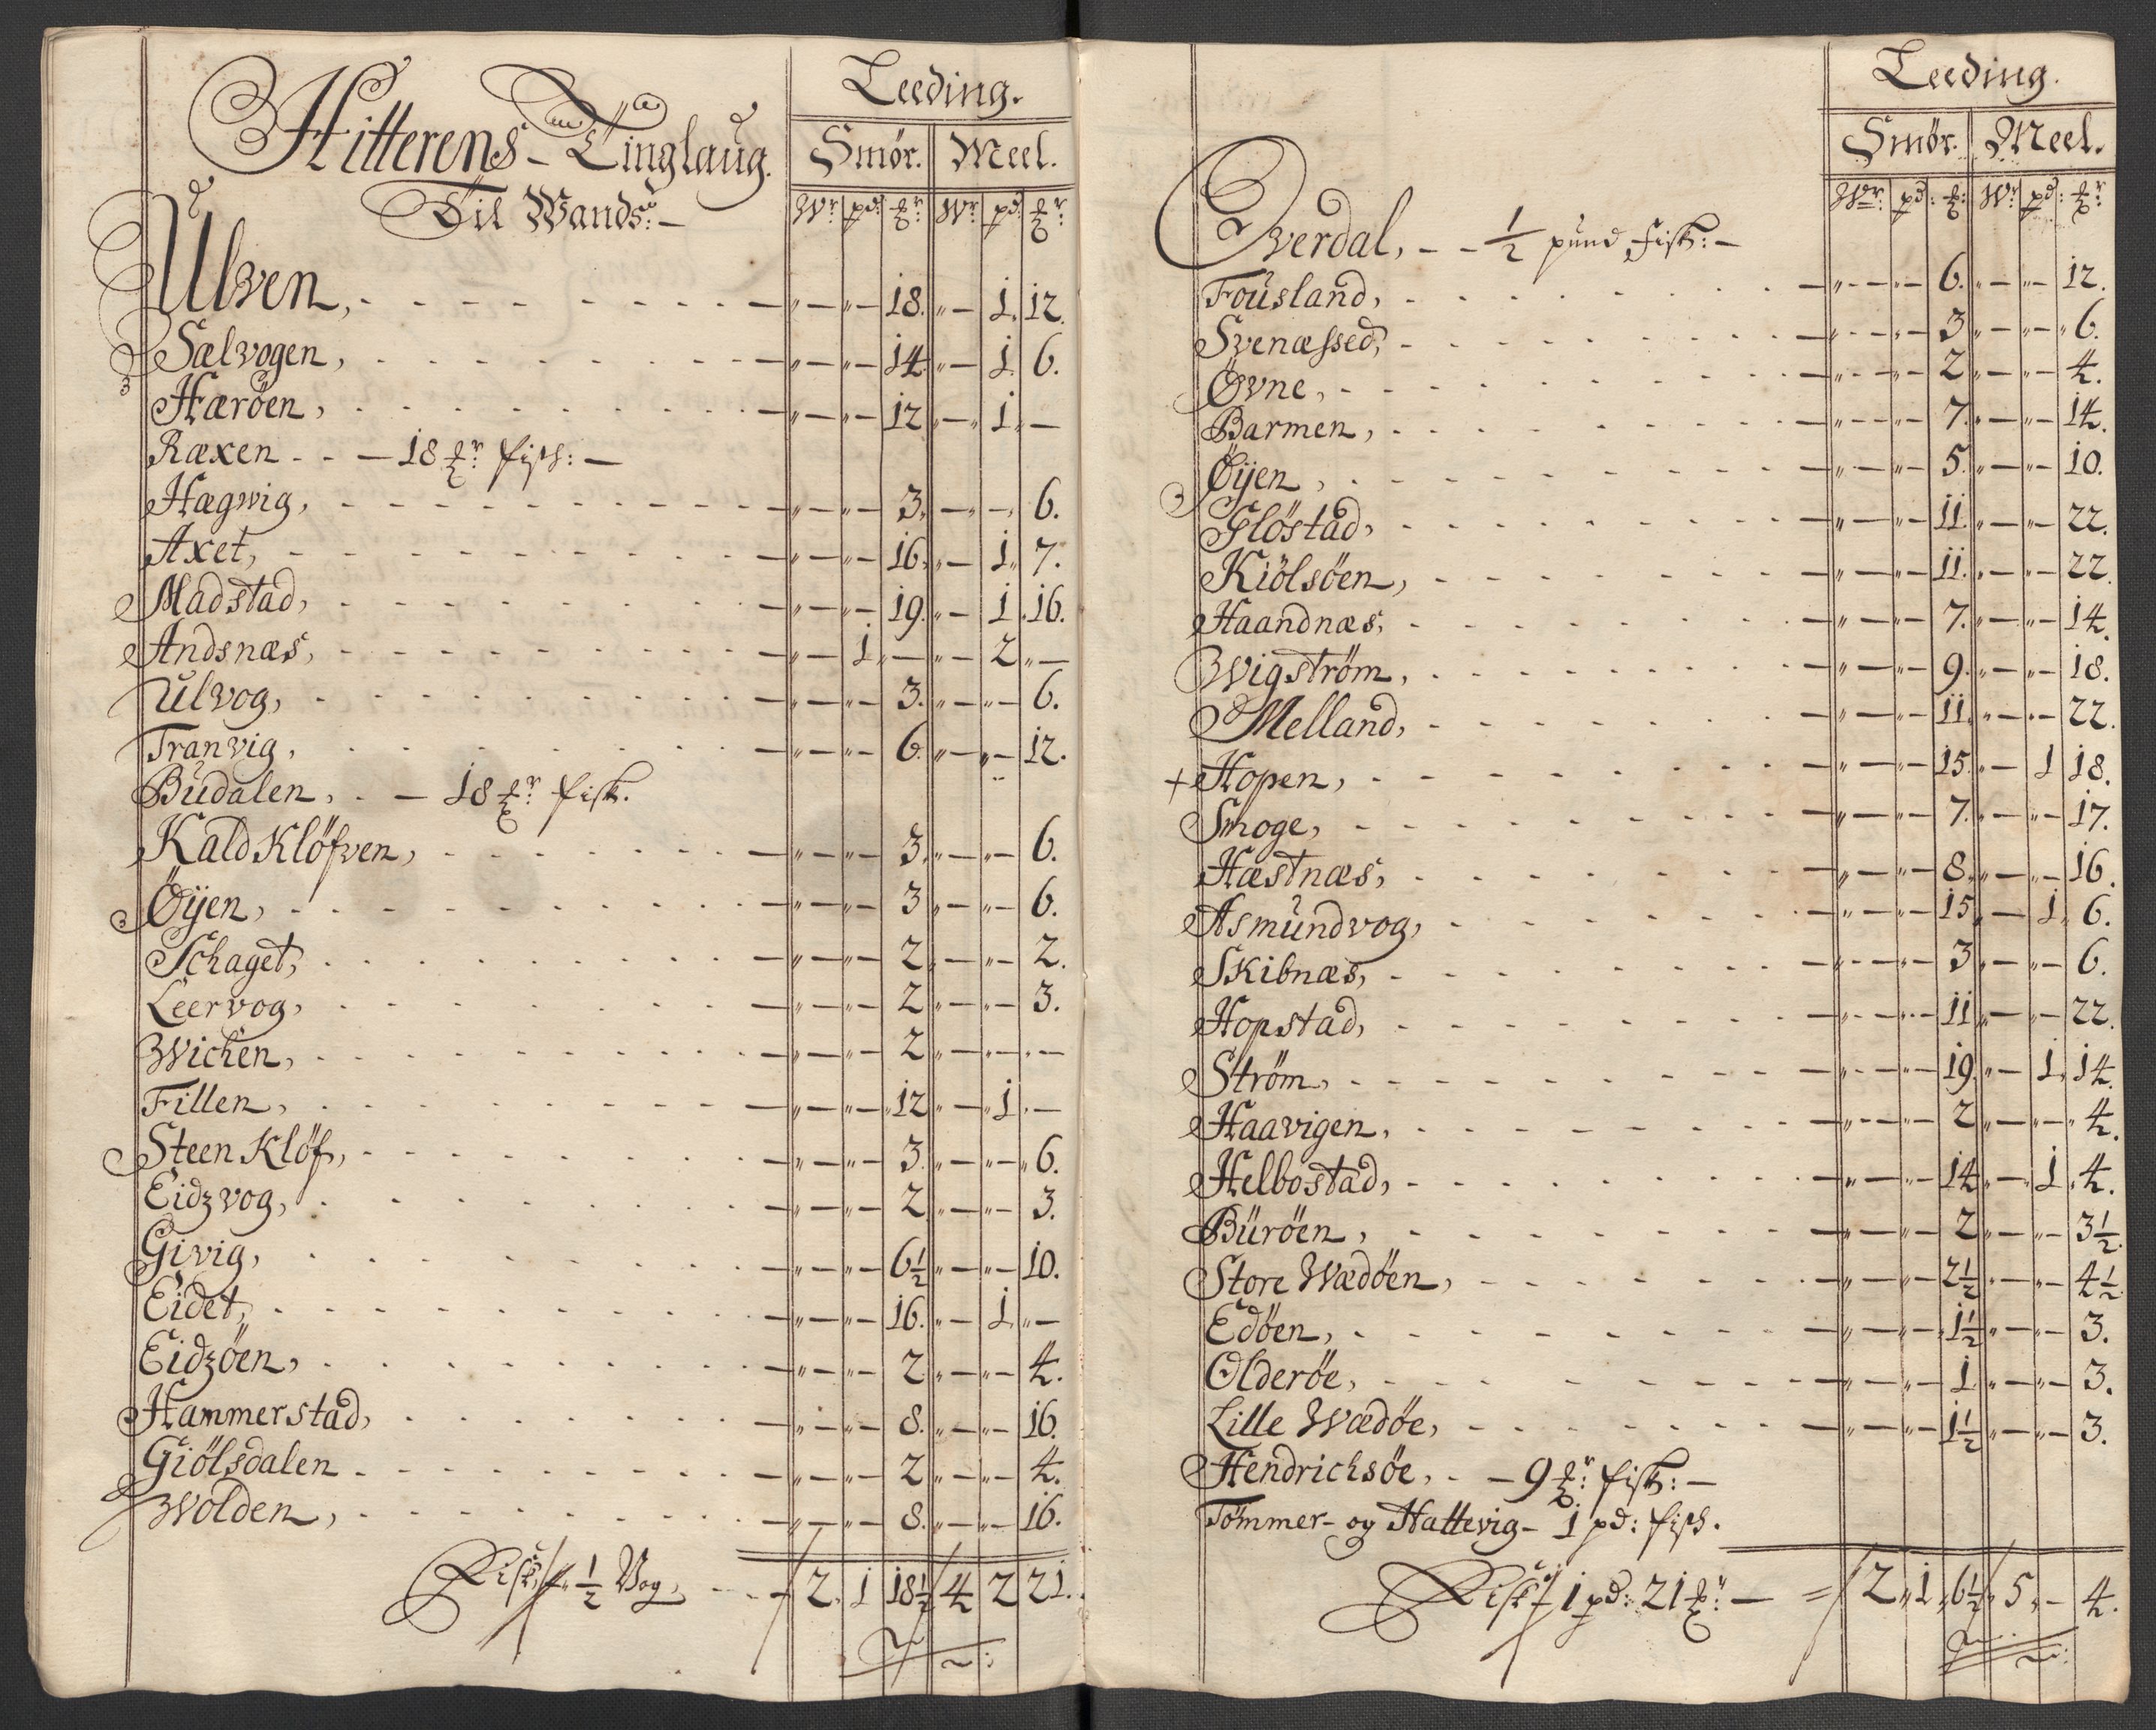 Hitterens Tinglaug.
Til Wands:
Leeding.
Smør. Meel.
Wr: pd: ℔r: Wr: pd: ℔r:
Ulven, - - - 18. - 1. 12.
Sælvogen, - - - 14. - 1. 6.
Hæröen, - - - 12 - 1. -
Ræxen - - 18 ℔r: fisk: -
Hægwig, - - - 3. - - 6.
Axet, - - - 16. - 1. 7.
Madstad, - - - 19. - 1. 16.
Andsnæs, - - 1. - - 2. -
Ulvog, - - - 3. - - 6.
Tranvig, - - - 6. - - 12.
Büdalen, - 18 ℔r fisk.
Kald Klöfven, - - - 3. - - 6.
Öijen, - - - 3 - - 6.
Schaget, - - - 2. - - 2.
Leervog, - - - 2 - - 3.
Wichen, - - - 2 - - -
Fillen, - - - 12 - 1. -
Steen Klöf, - - - 3. - - 6.
Eidzvog, - - - 2. - - 3.
Givig, - - - 6½ - - 10.
Eidet, - - - 16. - 1. -
Eidzöen, - - - 2 - - 4.
Hammerstad, - - - 8. - - 16.
Giölsdalen - - - 2 - - 4.
Wolden, - - - 8. - - 16.
Fisk ½ Vog, - - 2. 1 18½ 4 2 21.
Leeding.
Smør. Meel.
Wr: pd: ℔: Wr: pd: ℔r:
Overdal, - - ½ pund fisk: -
Fousland, - - - 6. - - 12.
Svenæssed, - - - 3 - - 6.
Øvne, - - - 2 - - 4.
Barmen, - - - 7. - - 14.
Öijen, - - - 5. - - 10.
Glöstad, - - - 11. - - 22.
Kiölsöen, - - - 11. - - 22.
Haandnæs, - - - 7. - - 14.
Wigström, - - - 9. - - 18.
Melland, - - - 11. - - 22.
+ Hopen, - - - 15. - 1 18.
Smoge, - - - 7. - - 17.
Hæstnæs, - - - 8. - - 16.
Asmundvog, - - - 15. - 1. 6.
Skibnæs, - - - 3 - - 6.
Hopstad, - - - 11 - - 22.
Ström, - - - 19. - 1. 14.
Haavigen, - - - 2 - - 4.
Helbostad, - - - 14 - 1. 4.
Büröen, - - - 2 - - 3½.
Store Wædöen, - - - 2½ - - 4½
Edöen, - - - 1½ - - 3.
Olderöe, - - - 1. - - 3.
Lille Wædöe, - - - 1½ - - 3.
Hendrichsöe, - 9 ℔r: fisk: -
Tömmer- og Hattevig - 1 pd: fisk.
Fisk 1 pd: 21 ℔r: - 2. 1. 6½ 5. - 4.